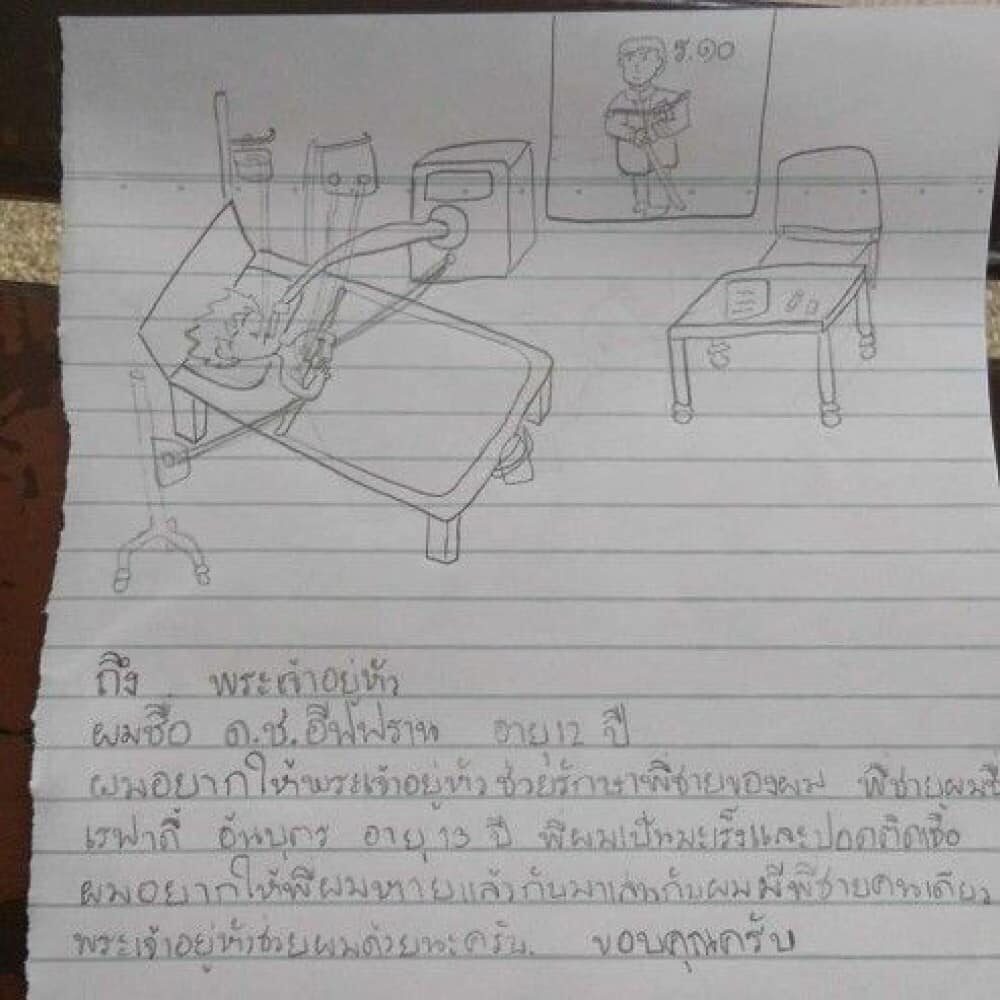 ร.๑๐
ถึง พระเจ้าอยู่หัว
ผมชื่อ ด.ช.ฮีฟฟราน อายุ 12 ปี
ผมอยากให้พระเจ้าอยู่หัวช่วยรักษาพี่ชายของผม พี่ชายผมชื่
เรฟาดี้ อันบุตร อายุ 13 ปี พี่ผมเป็นมะเร็งและปอดติดเชื้อ
ผมอยากให้พี่ผมหายแล้วกับมาเล่นกับผมมีพี่ชายคนเดียว
พระเจ้าอยู่หัวช่วยผมด้วยนะครับ. ขอบคุณครับ